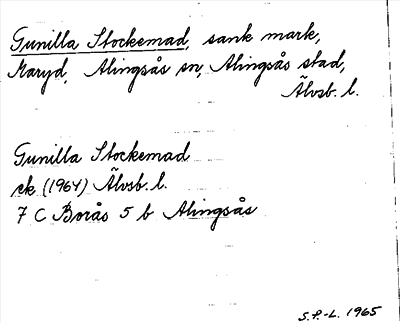 Gunilla Stockemad, sank mark,
Maryd, Alingsås sn, Alingsås stad,
Älvsb. l.
Gunilla Stockemad
ek (1964) Älvsb. l.
7 C Borås 5 b Alingsås
S.P.-L. 1965